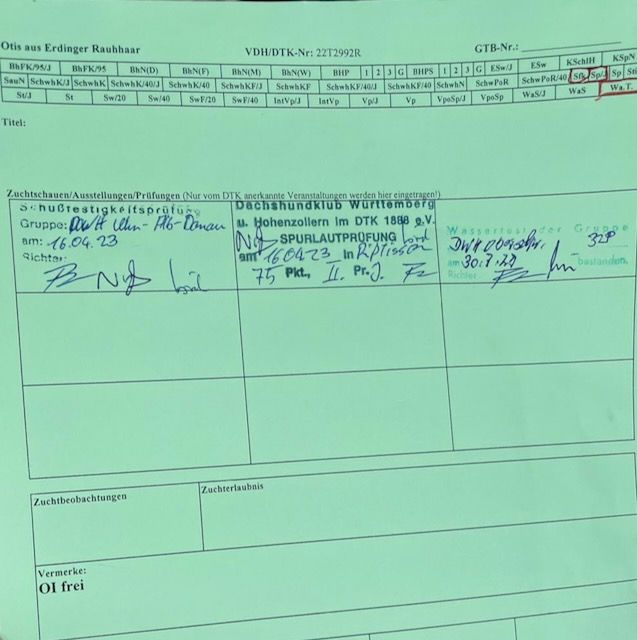 Otis aus Erdinger Rauhhaar VDH/DTK-Nr: 22T2992R GTB-Nr.:
BhFK/95/J BhFK/95 BhN(D) BhN(F) BhN(M) BhN(W) BHP 1 2 3 G BHPS 1 2 3 G ESw/J ESw KSchlH KSpN
SauN SchwhK/J SchwhK SchwhK/40/J SchwhK/40 SchwhKF/J SchwhKF SchwhKF/40/J SchwhKF/40 SchwhN SchwPoR SchwPoR/40 Sfk Sp/J Sp
St/J St Sw/20 Sw/40 SwF/20 SwF/40 IntVp/J IntVp Vp/J Vp VpoSp/J VpoSp WaS/J WaS Wa.T.
Titel:
Zuchtschauen/Ausstellungen/Prüfungen (Nur vom DTK anerkannte Veranstaltungen werden hier eingetragen!)
Schußfestigkeitsprüfung
Gruppe: DWH Ulm-Alb-Donau
am: 16.04.23
Richter:
Dachshundklub Württemberg
u. Hohenzollern im DTK 1888 e.V.
SPURLAUTPRÜFUNG
am 16.04.23 in
75 Pkt., II. Pr. J.
Wassertest der Gruppe
DWH 328
am 30.7.23 bestanden.
Richter
Zuchtbeobachtungen
Zuchterlaubnis
Vermerke:
OI frei